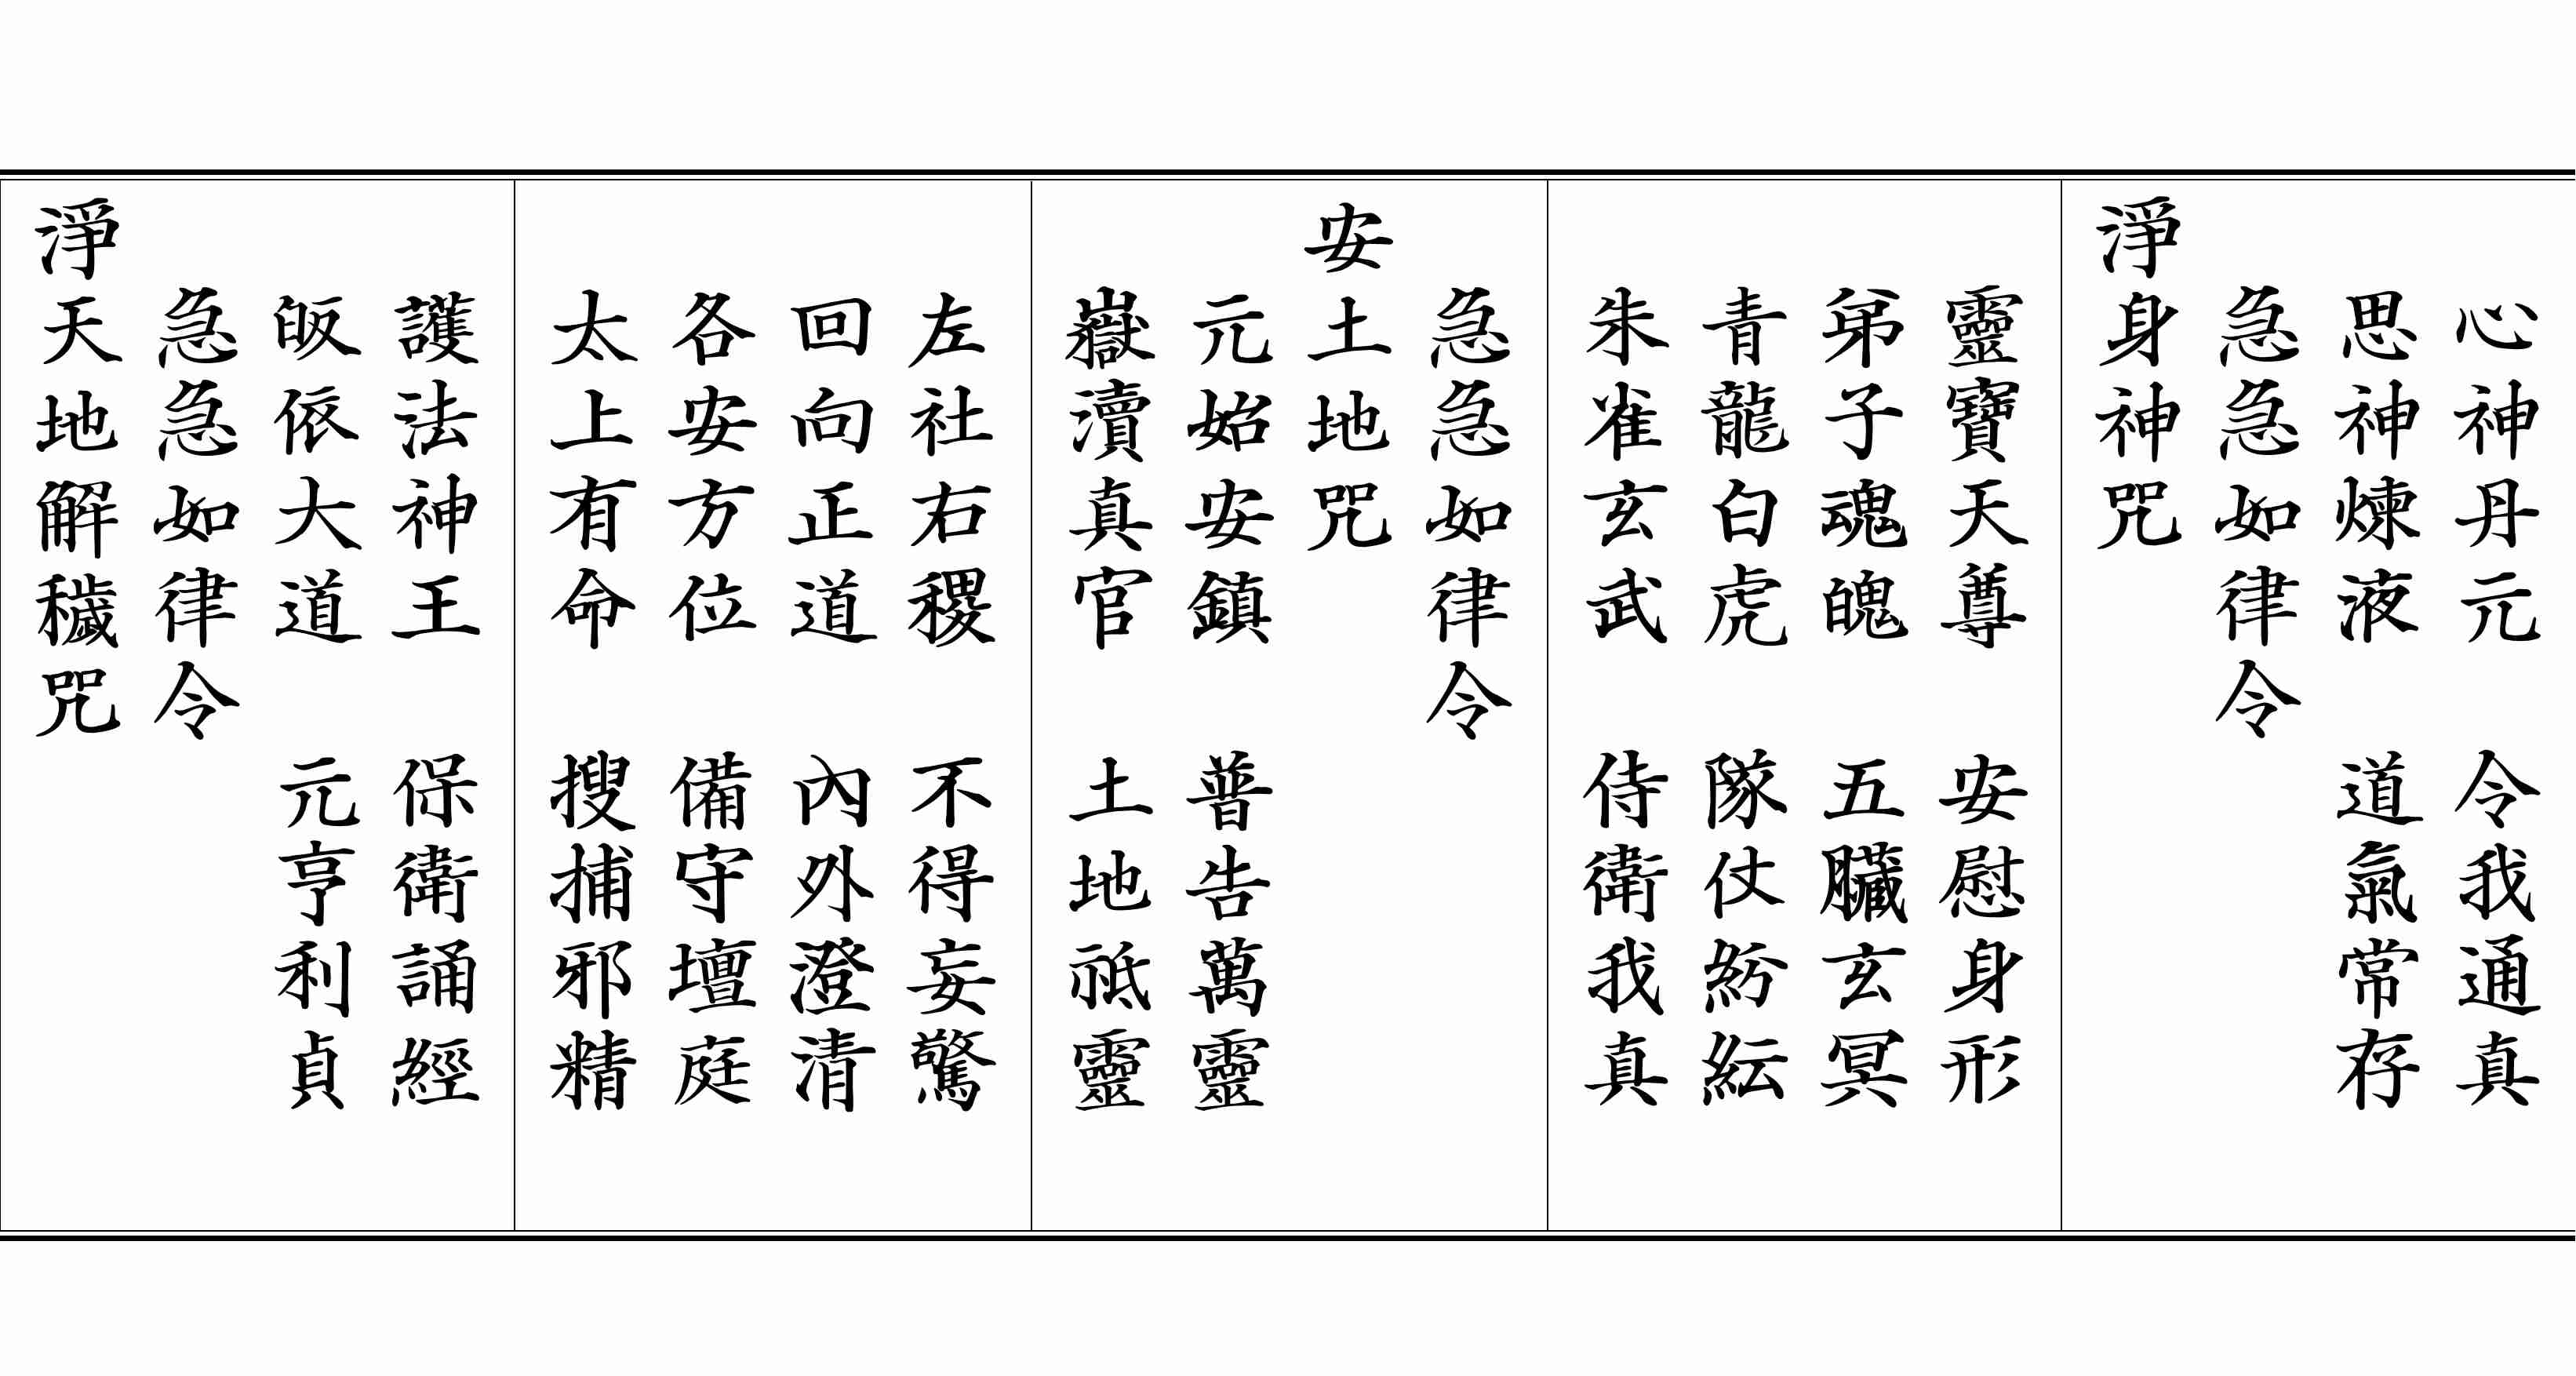 心神丹元　令我通真
思神煉液　道氣常存
急急如律令
淨身神咒
靈寶天尊　安慰身形
弟子魂魄　五臟玄冥
青龍白虎　隊仗紛紜
朱雀玄武　侍衛我真
急急如律令
安土地咒
元始安鎮　普告萬靈
嶽瀆真官　土地祇靈
左社右稷　不得妄驚
回向正道　內外澄清
各安方位　備守壇庭
太上有命　搜捕邪精
護法神王　保衛誦經
皈依大道　元亨利貞
急急如律令
淨天地解穢咒